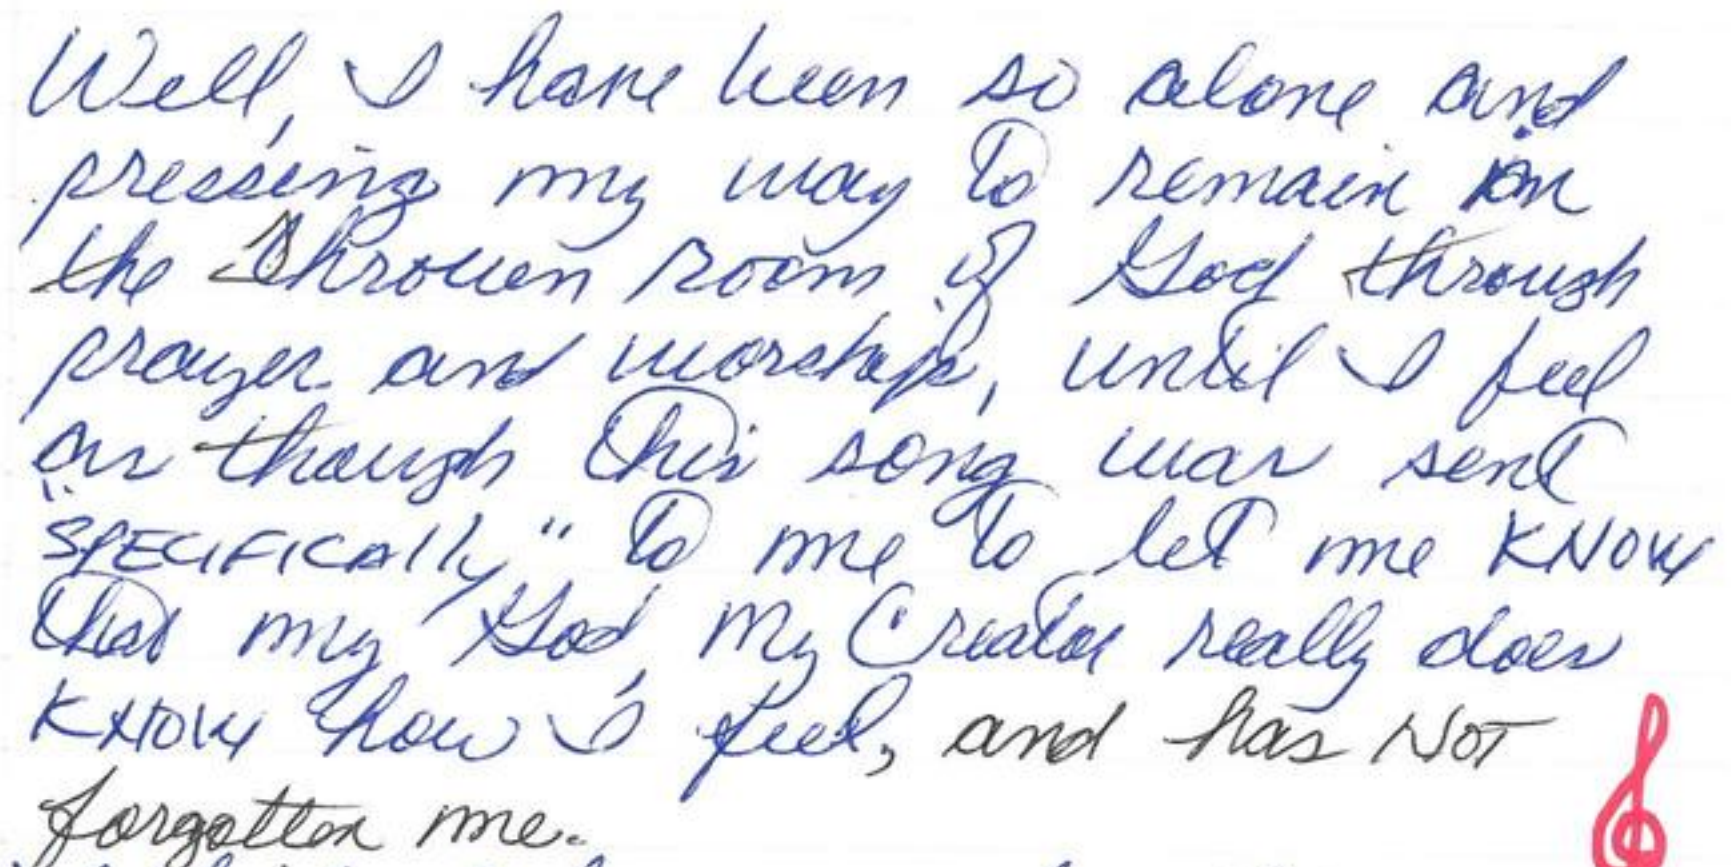 Well, I have been so alone and
pressing my way to remain in
the Throwen room of God through
prayer and worship, until I feel
as though this song was sent
"SPECIFICAlly" to me to let me KNOW
that my God, My Creator really does
KNOW how I feel, and has NOT
forgotten me.